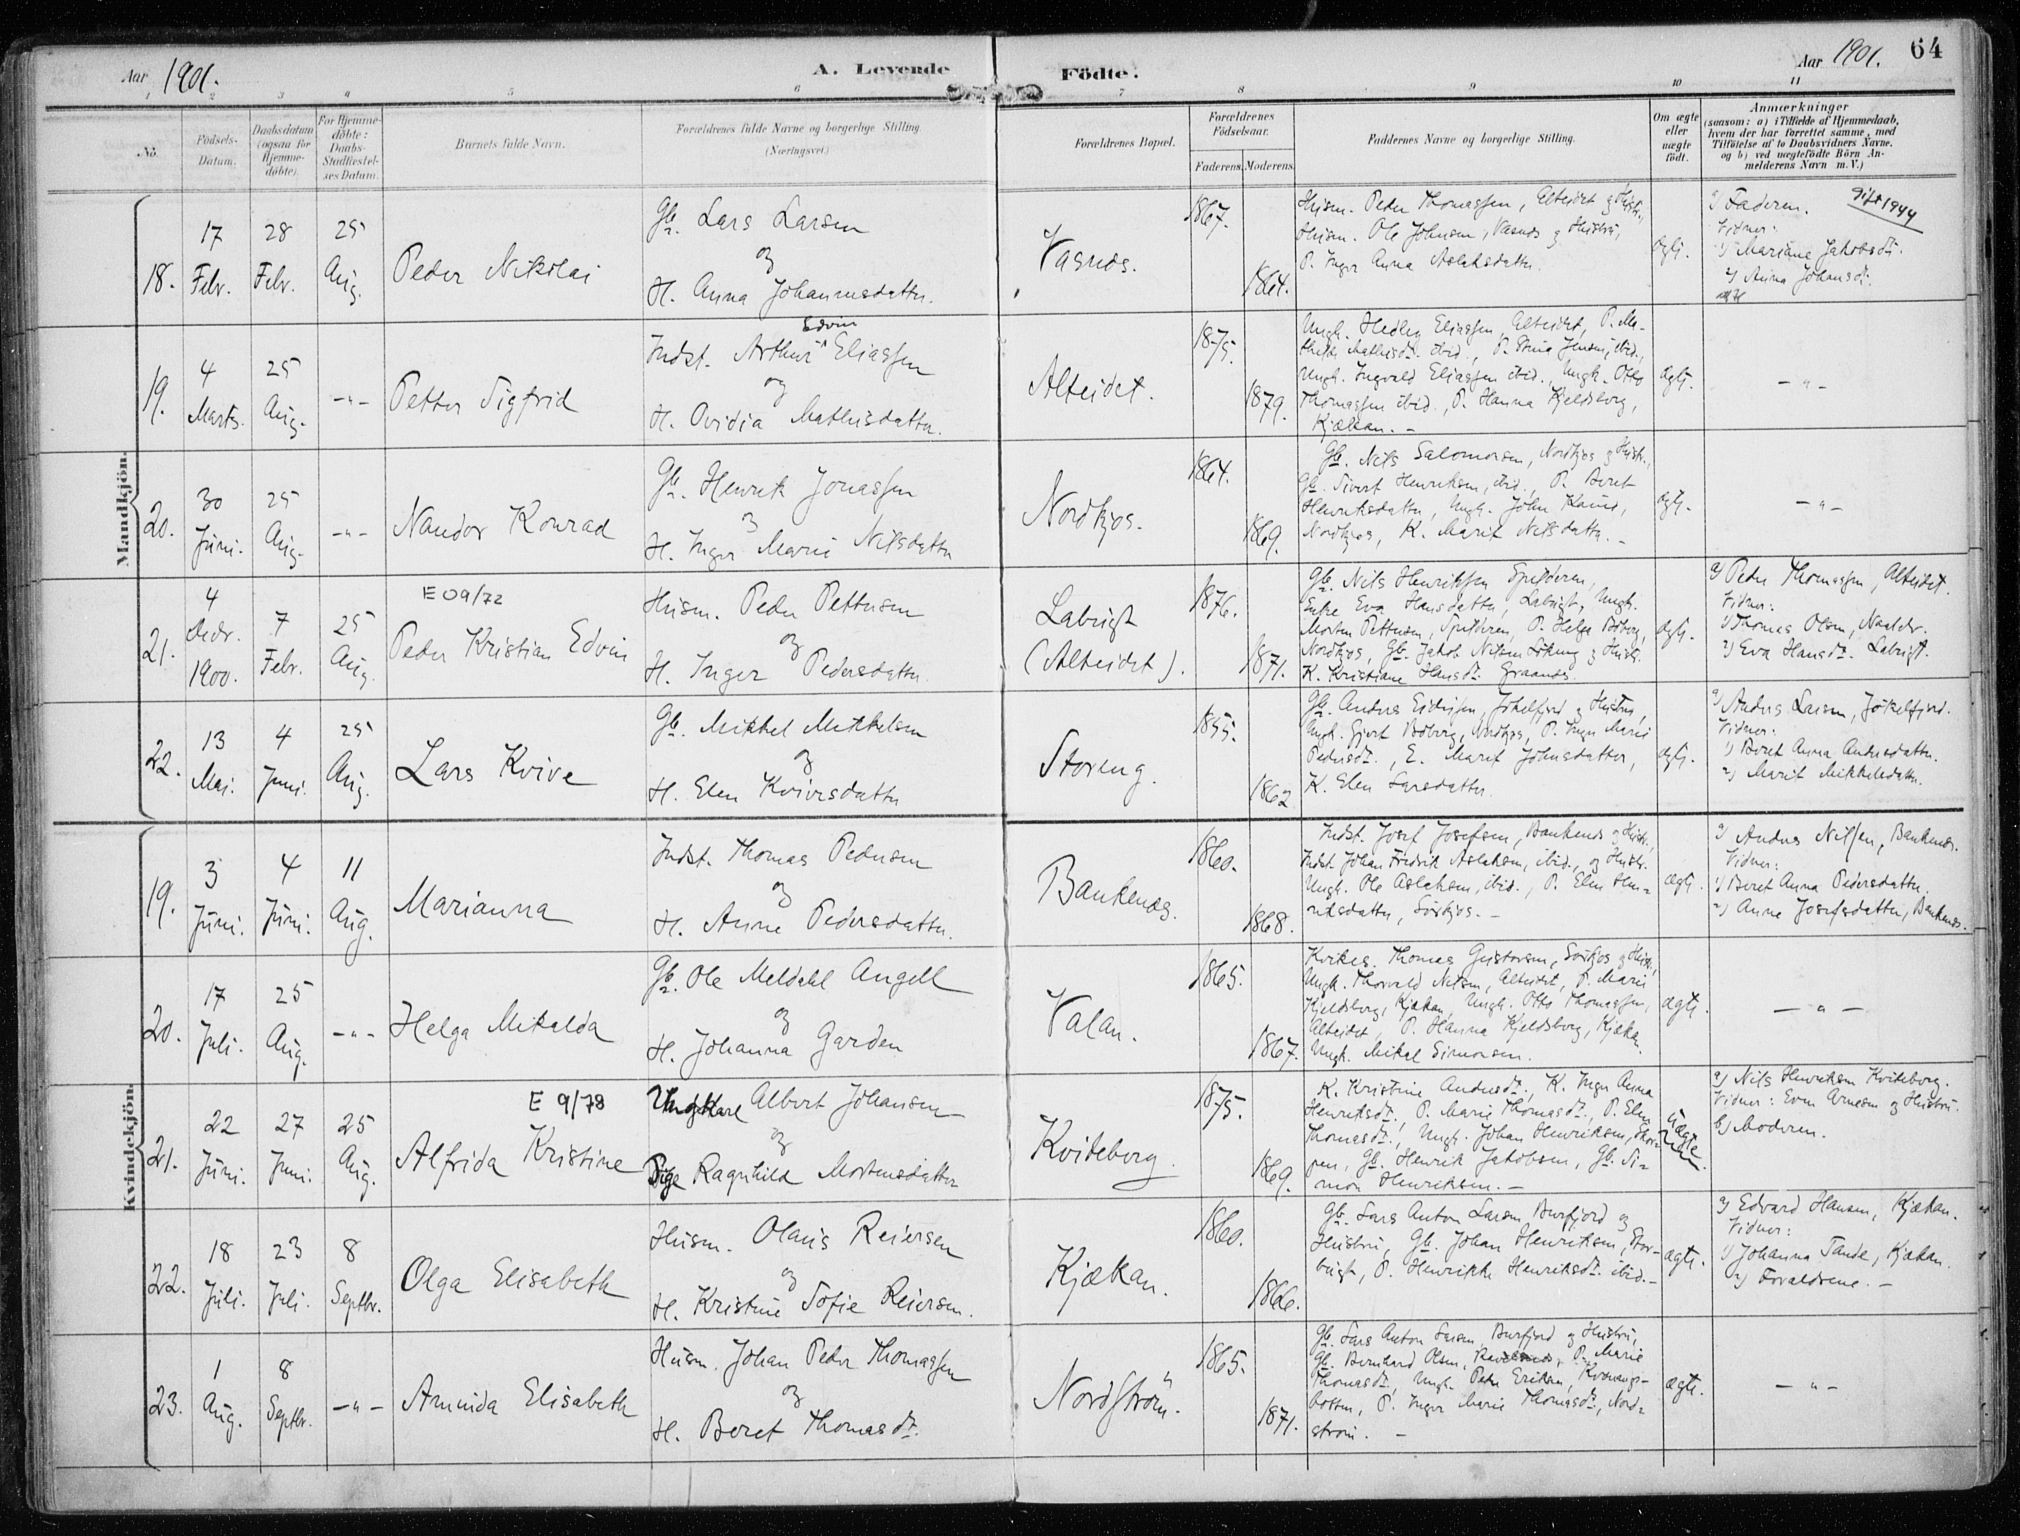 Aar 1901.
A. Levende
Födte.
Aar 1901.
64
1 2 3 4 5 6 7 8 9 10 11
No.
Födsels-
Datum.
Daabsdatum
(ogsaa for
Hjemme-
döbte).
For Hjemme-
döbte:
Daabs-
Stadfæstel-
ses Datum.
Barnets fulde Navn.
Forældrenes fulde Navne og borgerlige Stilling.
(Næringsvei.)
Forældrenes Bopæl.
Forældrenes
Födselsaar.
Faderens. Moderens.
Faddernes Navne og borgerlige Stilling.
Om ægte
eller
uægte
födt.
Anmærkninger
(saasom: a) i Tilfælde af Hjemmedaab,
hvem der har forrettet samme, med
Tilföielse af to Daabsvidners Navne,
og b) ved uægtefödte Börn An-
melderens Navn m. V.)
Mandkjön.
18.
17
Febr.
28
Febr.
25
Aug.
Peder Nikolai
Gb. Lars Larsen
og
H. Anna Johannesdatter.
Vasnes.
1867.
1864.
Husm. Peder Thomassen, Alteidet og Hustr.,
Husm. Ole Johnsen, Vasnes og Hustru,
P. Inger Anna Aslaksdatter.
ægt.
a) Faderen.
Gift 1944
Vidner:
1) Mariane Jakobsdt.
2) Anna Johansdt.
19.
4
Marts.
25
Aug.
-"-
Petter Sigfrid
Edvin
Indst. Arthur Eliassen
og
H. Ovidia Mathisdatter.
Alteidet.
1875.
1879.
Ungk. Hedley Eliassen, Alteidet, P. Ma-
thilde Mathisdt. ibid., P. Stina Jensen, ibid.,
Ungk. Ingvald Eliassen ibid., Ungk. Otto
Thomassen ibid., P. Hanna Kjeldsberg,
Kjækan. -
ægt.
-"-
20.
30
Juni.
25
Aug.
-"-
Nandor Konrad
Gb. Henrik Jonassen
og
H. Inger Marie Nilsdatter
Nordkjos.
1864.
1869.
Gb. Nils Salomonsen, Nordkjos og Hustr.,
Gb. Sivert Henriksen, ibid., P. Beret
Henriksdatter, Ungk. John
Nordkjos, K. Marit Nilsdatter. -
ægt.
-"-
21.
4
Decbr.
1900.
7
Febr.
25
Aug.
E 09/72
Peder Kristian Edvin
Husm. Peder Pettersen
og
H. Inger Pedersdatter.
Labugt
(Alteidet).
1876.
1871.
Gb. Nils Henriksen Spilderen,
Enke Eva Hansdatter, Labugt, Ungk.
Morten Pettersen, Spilderen, P. Helga Boberg,
Nordkjos, Gb. Jakob Nilsen Löking og Hustr.
K. Kristiane Hansdt. Graanes.
ægt.
a) Peder Thomassen, Alteidet.
Vidner:
1) Thomas Olsen,
2) Eva Hansdt. Labugt.
22.
13
Mai.
4
Juni.
25
Aug.
Lars Kvive
Gb. Mikkel Mikkelsen
og
H. Elen Kvivesdatter
Storeng.
1855.
1862
Gb. Anders Eidissen, Jökelfjord og Hustru,
Ungk. Gjert Boberg, Nordkjos, P. Inger Marie
Pedersdt., E. Marit Johnsdatter,
K. Elen Larsdatter.
ægt.
a) Anders Larsen, Jökelfjord.
Vidner:
1) Beret Anna Andersdatter.
2) Marit Mikkelsdatter.
Kvindekjön.
19.
3
Juni.
4
Juni.
11
Aug.
Marianna
Indst. Thomas Pedersen
og
H. Anne Pedersdatter.
Bankenes.
1860.
1868.
Indst. Josef Josefsen, Bankenes og Hustr.,
Indst. Johan Fredrik Aslaksen, ibid., og Hustr.
Ungk. Ole Aslaksen, ibid., P. Elen Hen-
riksdatter, Sörkjos. -
ægt.
a) Anders Nilsen, Bankenes.
Vidner:
1) Beret Anna Pedersdatter.
2) Anne Josefsdatter, Bankenes.
20.
17
Juli.
25
Aug.
-"-
Helga Mikalda
Gb. Ole Meldahl Angell
og
H. Johanna Garden
Valan.
1865.
1867.
Thomas Gustavsen, Sörkjos og Hustr.,
Ungk. Thorvald Nilsen, Alteidet, P. Marie
Kjeldsberg, Kjækan, Ungk. Otto Thomassen,
Alteidet, P. Hanna Kjeldsberg, Kjækan.
Ungk. Mikal Simonsen.
ægt.
-"-
21.
22
Juni.
27
Juni.
25
Aug.
E 9/78
Alfrida Kristine
Ungkarl Albert Johansen
og
Pige Ragnhild Mortensdatter
Kviteborg.
1875.
1869.
K. Kristine Andersdt., K. Inger Anna
Henriksdt., P. Marie Thomasdt., P. Elen
Thomasdt., Ungk. Johan Henriksen,
Gb. Henrik Jakobsen, Gb. Si-
mon Henriksen. -
uægte
a) Nils Henriksen Kviteborg.
Vidner: Even Arnesen og Hustru.
b) Moderen.
22.
18
Juli.
23
Juli.
8
Septbr.
Olga Elisabeth
Husm. Olaus Reiersen
og
H. Kristine Sofie Reiersen.
Kjækan.
1860.
1866.
Gb. Lars Anton Larsen Burfjord og
Hustru, Gb. Johan Henriksen, Stor-
bugt, P. Henrikke Henriksdt. ibid. -
ægt.
a) Edvard Hansen, Kjækan.
Vidner:
1) Johanna Tande, Kjækan.
2) Forældrene. -
23.
1
Aug.
8
Septbr.
-"-
Aminda Elisabeth
Husm. Johan Peder Thomassen
og
H. Beret Thomasdt.
Nordström.
1865.
1871.
Gb. Lars Anton Larsen, Burfjord og Hustru,
Gb. Bernhard Olsen, P. Marie
Thomasdt., Ungk. Peder Eriksen, Kvænangs-
botten, P. Inger Marie Thomasdt., Nord-
ström. -
ægt.
-"-